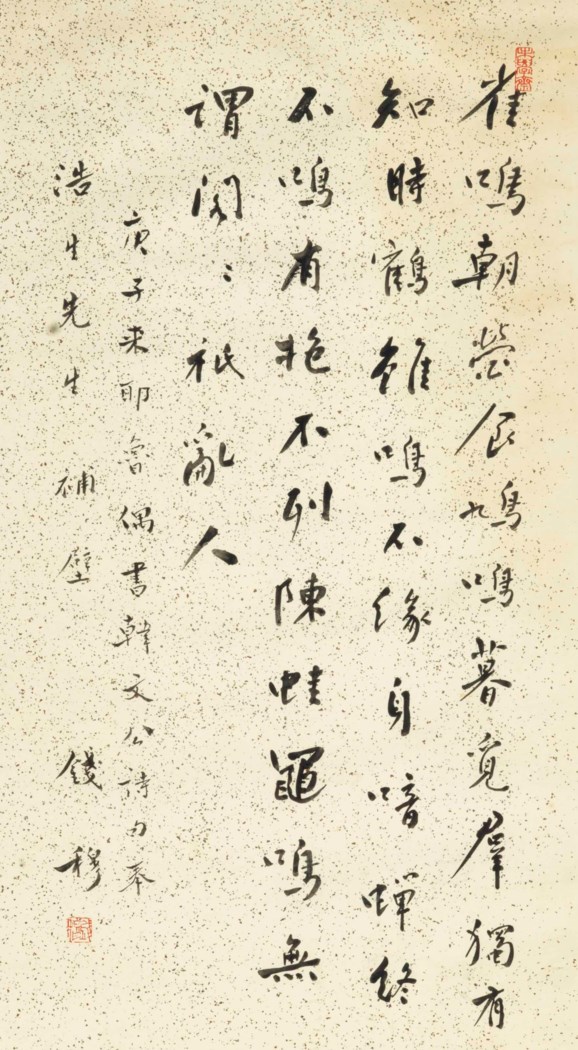 雀鳴朝營食鳩鳴暮覓羣獨有
知時鶴雖鳴不緣身喑蟬終
不鳴有抱不列陳蛙黽鳴無
謂閣〻祇亂人
庚子来耶魯偶書韓文公詩句奉
浩生先生 補壁 錢穆